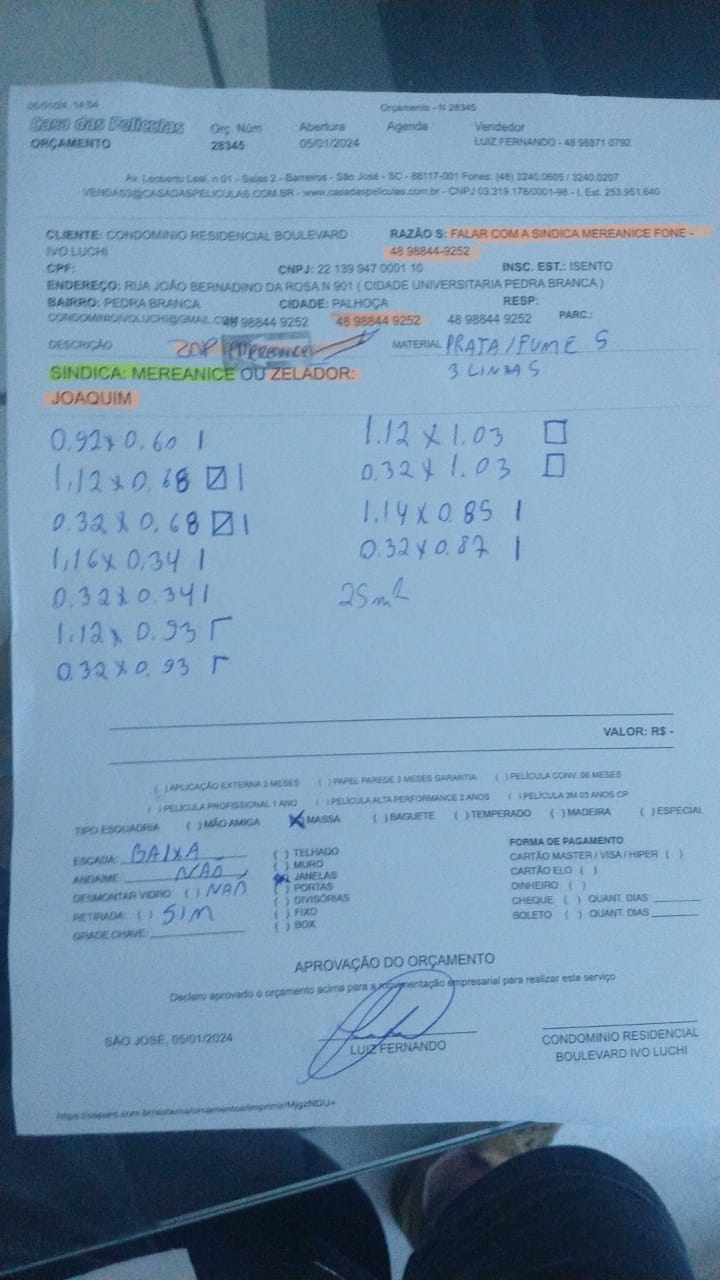 05/01/24, 14:54 Orçamento - N 28345
Casa das Películas Orç. Núm Abertura Agenda Vendedor
ORÇAMENTO 28345 05/01/2024 LUIZ FERNANDO - 48 98871 0792
Av. Leoberto Leal, n 01 - Salas 2 - Barreiros - São José - SC - 88117-001 Fones: (48) 3240.0605 / 3240.0207
VENDAS3@CASADASPELICULAS.COM.BR - www.casadaspeliculas.com.br - CNPJ 03.319.178/0001-98 - I. Est. 253.951.640
CLIENTE: CONDOMINIO RESIDENCIAL BOULEVARD IVO LUCHI
RAZÃO S: FALAR COM A SINDICA MEREANICE FONE - 48 98844-9252
CPF: CNPJ: 22 139 947 0001 10 INSC. EST.: ISENTO
ENDEREÇO: RUA JOÃO BERNADINO DA ROSA N 901 ( CIDADE UNIVERSITARIA PEDRA BRANCA )
BAIRRO: PEDRA BRANCA CIDADE: PALHOÇA RESP:
CONDOMINIOIVOLUCHI@GMAIL.COM 48 98844 9252 48 98844 9252 48 98844 9252 PARC.:
DESCRIÇÃO MATERIAL PRATA/FUME S
3 LINHAS
SINDICA: MEREANICE OU ZELADOR:
JOAQUIM
0.92x0.60 |
1.12x0.68 |
0.32x0.68 |
1,16x0,34 |
0.32x0.34 |
1.12x0.93
0.32x0.93
1.12x1.03
0.32x1.03
1.14x0.85 |
0.32x0.87 |
25m²
VALOR: R$ -
( )APLICAÇÃO EXTERNA 3 MESES ( ) PAPEL PAREDE 3 MESES GARANTIA ( ) PELÍCULA CONV. 06 MESES
( ) PELÍCULA PROFISSIONAL 1 ANO ( ) PELÍCULA ALTA PERFORMANCE 2 ANOS ( ) PELÍCULA 3M 03 ANOS CP
TIPO ESQUADRIA ( ) MÃO AMIGA (X) MASSA ( ) BAGUETE ( ) TEMPERADO ( ) MADEIRA ( ) ESPECIAL
ESCADA: BAIXA
ANDAIME: NÃO
DESMONTAR VIDRO: ( ) NÃO
RETIRADA: ( ) SIM
GRADE CHAVE:
( ) TELHADO
( ) MURO
(X) JANELAS
( ) PORTAS
( ) DIVISÓRIAS
( ) FIXO
( ) BOX
FORMA DE PAGAMENTO
CARTÃO MASTER / VISA / HIPER ( )
CARTÃO ELO ( )
DINHEIRO ( )
CHEQUE ( ) QUANT. DIAS
BOLETO ( ) QUANT. DIAS
APROVAÇÃO DO ORÇAMENTO
Declaro aprovado o orçamento acima para a movimentação empresarial para realizar este serviço
SÃO JOSÉ, 05/01/2024
LUIZ FERNANDO
CONDOMINIO RESIDENCIAL
BOULEVARD IVO LUCHI